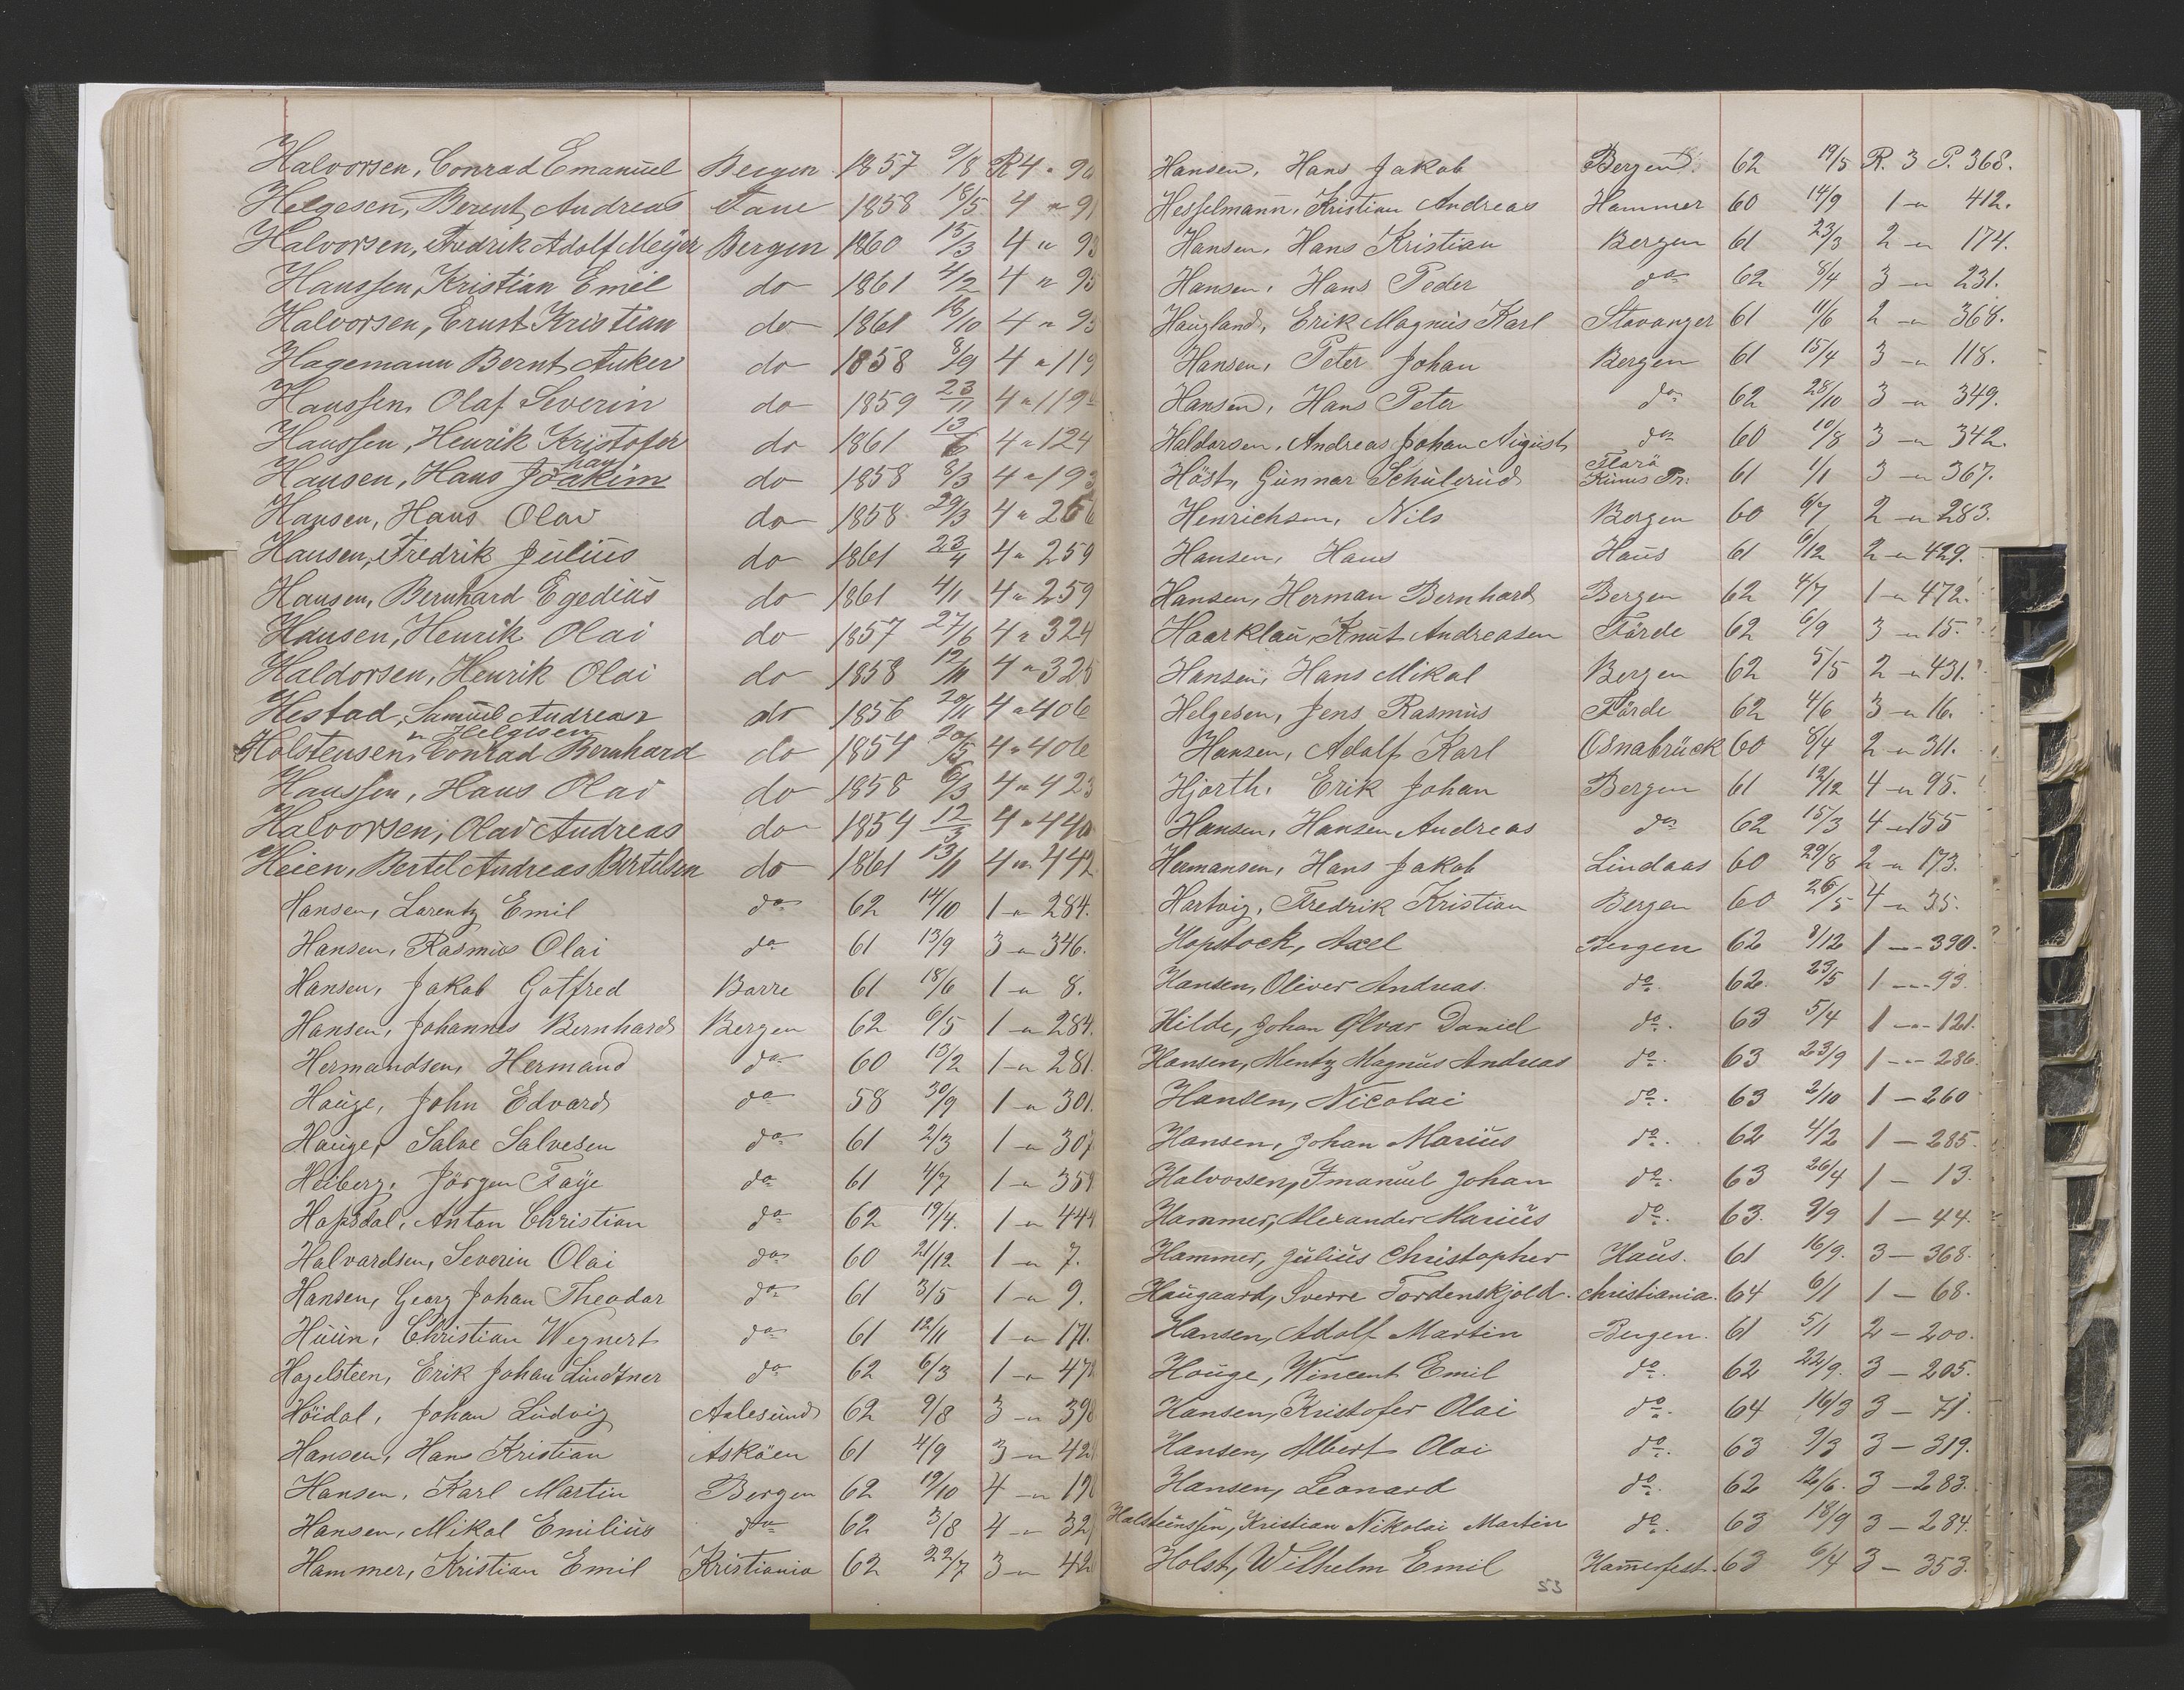 Halvorsen, Conrad Emanuel Bergen 1857 9/8 R 4 " 90
Helgesen, Berent Andreas Fane 1858 18/5 4 " 91
Halvorsen, Fredrik Adolf Meÿer Bergen 1860 15/3 4 " 93
Hanssen, Kristian Emil do 1861 4/2 4 " 95
Halvorsen, Ernst Kristian do 1861 18/10 4 " 95
Hagemann Bernt Anker do 1858 8/9 4 " 119
Hanssen, Olaf Severin do 1859 23/11 4 " 119
Hanssen, Henrik Kristofer do 1861 13/6 4 " 124
Hansen, Hans Joakim do 1858 8/3 4 " 193
Hansen, Hans Olav do 1858 29/3 4 " 256
Hansen, Fredrik Julius do 1861 23/4 4 " 259
Hansen, Bernhard Egedius do 1861 4/1 4 " 259
Hansen, Henrik Olai do 1857 27/6 4 " 324
Haldorsen, Henrik Olai do 1858 12/11 4 " 325
Hestad, Samuel Andreas do 1856 20/11 4 " 406
" Helgesen
Holstensen, Conrad Bernhard do 1854 20/5 4 " 406
Hanssen, Hans Olai do 1858 6/3 4 " 423
Halvorsen, Olav Andreas do 1854 12/3 4 " 440
Heien, Bertel Andreas Bertelsen do 1861 13/11 4 " 442
Hansen, Larentz Emil do 62 14/10 1 - " 284.
Hansen, Rasmus Olai do 61 13/9 3 - " 346.
Hansen, Jakob Gotfred Borre 61 18/6 1 - " 8.
Hansen, Johannes Bernhard Bergen 62 6/5 1 - " 284.
Hermandsen, Hermand do 60 13/2 1 - " 281.
Hauge, John Edvard do 58 30/9 1 - " 301.
Hauge, Salve Salvesen do 61 2/3 1 - " 307
Heiberg, Jörgen Faÿe do 61 4/7 1 - " 359
Hopsdal, Anton Christian do 62 19/4. 1 - " 444
Halvardsen, Severin Olai do 60 21/12 1 - " 7.
Hansen, Georg Johan Theodor do 61 3/5 1 - " 9.
Huun, Christian Wegnert do 61 12/11 1 - " 171.
Hagelsteen, Erik Johan Lindtner do 62 6/3 1 - " 472
Höidal, Johan Ludvig Aalesund 62 9/8 3 - " 398
Hansen, Hans Kristian Asköen 61 4/9 3 - " 42
Hansen, Karl Martin Bergen 62 19/10 4 - " 19
Hansen, Mikal Emilius do 62 3/8 4 - " 32
Hammer, Kristian Emil Kristiania 62 22/7 3 - " 42
Hansen, Hans Jakob Bergen 62 19/5 R. 3 P. 368.
Hesselmann, Kristian Andreas Hammer 60 14/9 1 - " 412.
Hansen, Hans Kristian Bergen 61 23/3 2 - " 174.
Hansen, Hans Peder do 62 8/4 3 - " 231.
Haugland, Erik Magnus Karl Stavanger 61 11/6 2 - " 368.
Hansen, Peter Johan Bergen 61 15/4 3 - " 118.
Hansen, Hans Peter do 62 28/10 3 - " 349.
Haldorsen, Andreas Johan August do 60 10/8 3 - " 342.
Höst, Gunnar Schulerud Florö Kinns Pr. 61 1/1 3 - " 367.
Henrichsen, Nils Bergen 60 6/7 2 - " 283.
Hansen, Hans Haus 61 6/12 2 - " 429.
Hansen, Herman Bernhard Bergen 62 4/7 1 - " 472.
Haarklau, Knut Andreasen Förde 62 6/9 3 - " 15.
Hansen, Hans Mikal Bergen 62 5/5 2 - " 431.
Helgesen, Jens Rasmus Förde 62 4/6 3 - " 16.
Hansen, Adolf Karl Osnabrück 60 8/4 2 - " 311.
Hjorth, Erik Johan Bergen 61 12/12 4 - " 95.
Hansen, Hansen Andreas do 62 15/3 4 - " 155
Hermansen, Hans Jakob Lindaas 60 29/8 2 - " 173.
Hartvig, Fredrik Kristian Bergen 60 26/5 4 - " 35.
Hopstock, Axel Bergen 62 8/12 1 - " - 390.
Hansen, Oliver Andreas. do. 62. 23/5 1 - " - 93.
Hilde, Johan Olvar Daniel do. 63 5/4 1 - " - 121.
Hansen, Mentz Magnus Andreas do. 63 23/9 1 - " - 286.
Hansen, Nicolai do. 63 2/10 1 - 260
Hansen, Johan Marius do. 62 4/2 1 - 285.
Halvorsen, Imanuel Johan do. 63 26/4 1 - 13.
Hammer, Alexander Marius do. 63. 9/9 1 - 44.
Hammer, Julius Christopher Haus. 61 16/9. 3 - 368.
Haugaard, Sverre Tordenskjold. christiania. 64 6/1 1 - 68.
Hansen, Adolf Martin Bergen. 61 5/1 2 - 200.
Houge, Wincent Emil do. 62 22/9. 3 - 205.
Hansen, Kristofer Olai do. 64 16/3 3 - 71.
Hansen, Albert Olai do. 63 9/3 3 - 319.
Hansen, Leonard do. 62 12/6. 3 - 283.
Halsteinssen, Kristian Nikolai Martin do. 63 18/9 3 - 284.
Holst, Wilhelm Emil Hamerfest. 63 6/4 3 - 353.
53
J
K